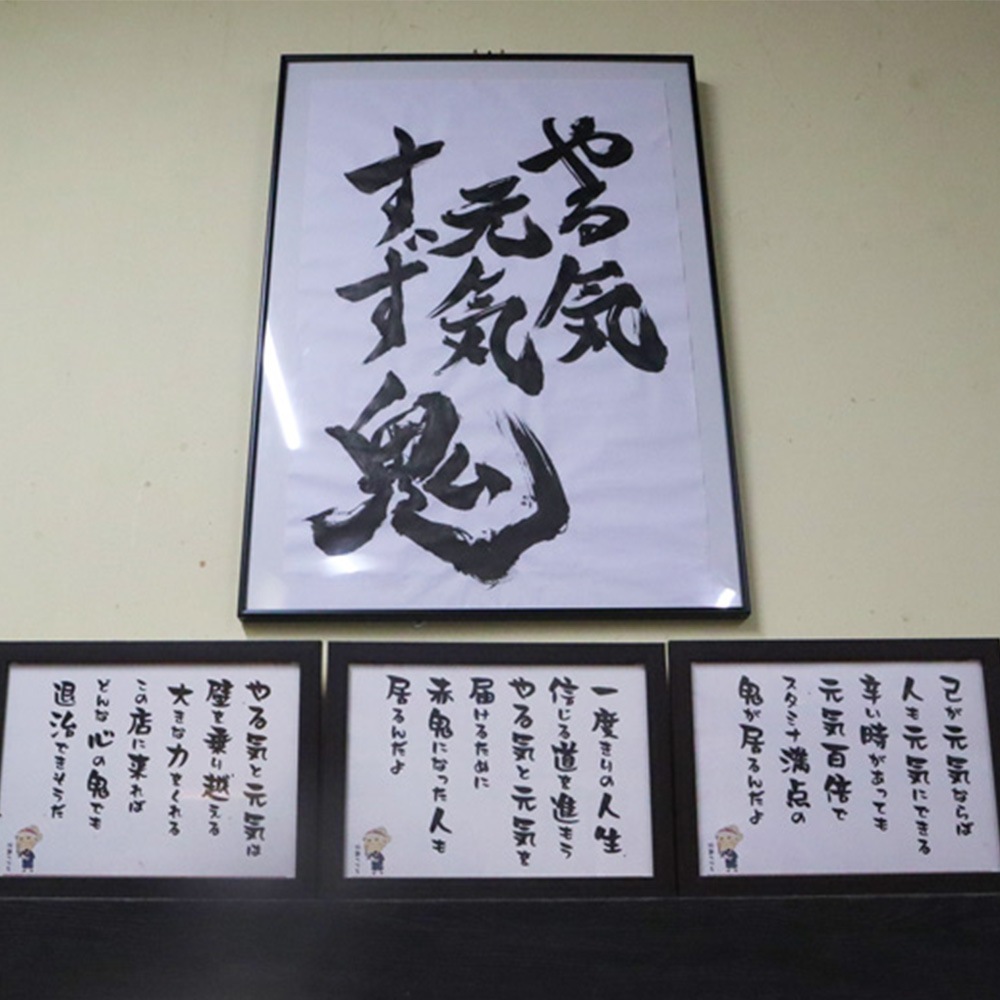 やる気
元気
すゞす
鬼
己が元気ならば
人も元気にできる
辛い時があっても
元気百倍で
スタミナ満点の
鬼が居るんだよ
一度きりの人生
信じる道を進もう
やる気と元気を
届けるために
赤鬼になった人も
居るんだよ
やる気と元気は
壁を乗り越える
大きな力をくれる
この店に来れば
どんな心の鬼でも
退治できそうだ